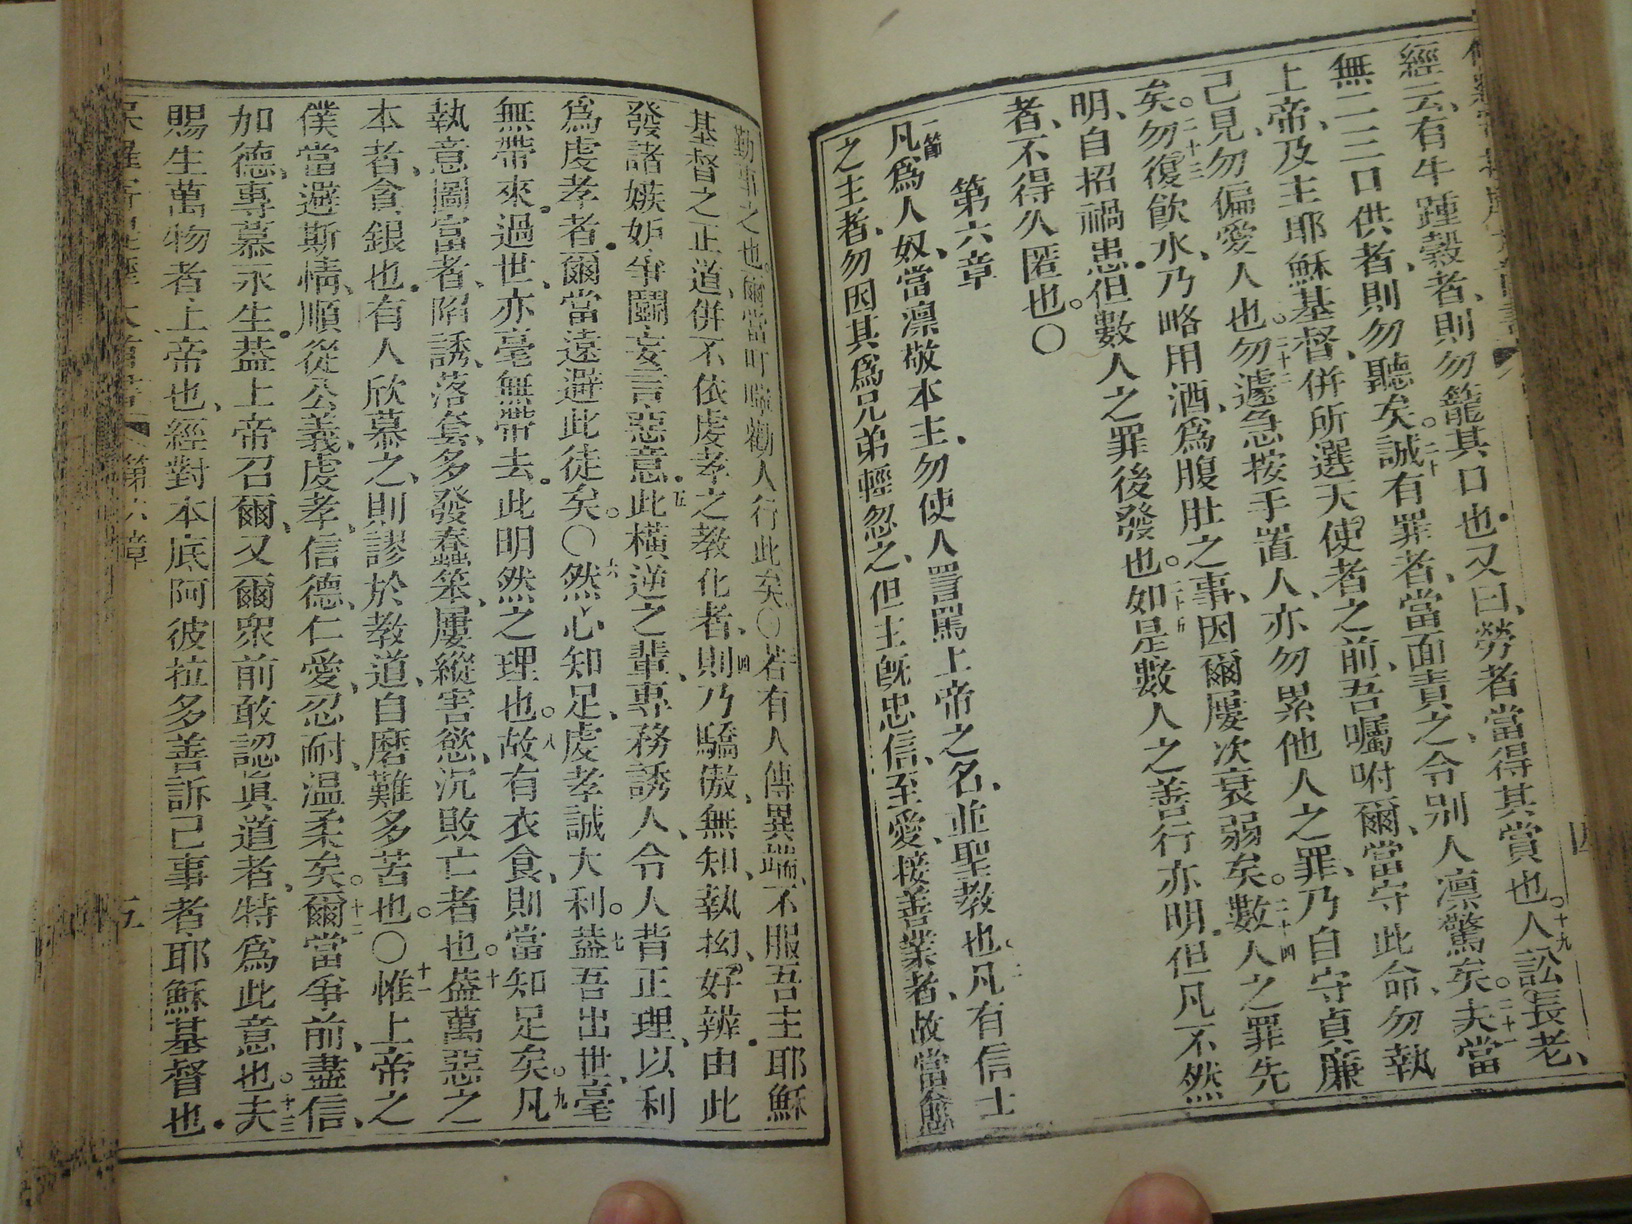 經云、有牛踵榖者、則勿籠其口也。又曰、勞者當得其賞也。十九人訟長老、
無二三口供者、則勿聽矣。二十誠有罪者、當面責之、令别人凛驚矣。二十一夫當
上帝、及主耶穌基督、併所選天使者之前、吾囑咐爾、當守此命、勿執
己見、勿偏愛人也。二十二勿遽急按手置人、亦勿累他人之罪、乃自守貞廉
矣。二十三勿復飲水、乃略用酒、為腹肚之事、因爾屢次衰弱矣。二十四數人之罪先
明、自招禍患。但數人之罪後發也。二十五如是數人之善行亦明。但凡不然
者、不得久匿也。〇
第六章
一節凡為人奴、當凛敬本主、勿使人詈罵上帝之名、並聖教也。二凡有信士
之主者、勿因其為兄弟輕忽之、但主旣忠信、至愛、接善業者、故當愈
勤事之也。爾當叮嚀勸人行此矣。〇三若有人傳異端、不服吾主耶穌
基督之正道、併不依虔孝之教化者、四則乃驕傲、無知、執拗、好辨。由此
發諸嫉妒、爭鬬、妄言、惡意。五此橫逆之輩、專務誘人、令人背正理、以利
為虔孝者。爾當遠避此徒矣。〇六然心知足、虔孝誠大利。七葢吾出世、毫
無帶來。過世、亦毫無帶去。此明然之理也。八故有衣食、則當知足矣。九凡
執意圖富者、陷誘、落套、多發蠢笨、屢縱害慾、沉敗亡者也。十葢萬惡之
本者、貪銀也。有人欣慕之、則謬於教道、自磨難多苦也。〇十一惟上帝之
僕當避斯情、順從公義、虔孝、信德、仁愛、忍耐、温柔矣。十二爾當爭前、盡信、
加德、專慕永生。葢上帝召爾、又爾眾前敢認眞道者、特為此意也。十三夫
賜生萬物者、上帝也、經對本底阿彼拉多善訴己事者、耶穌基督也。
第六章
五